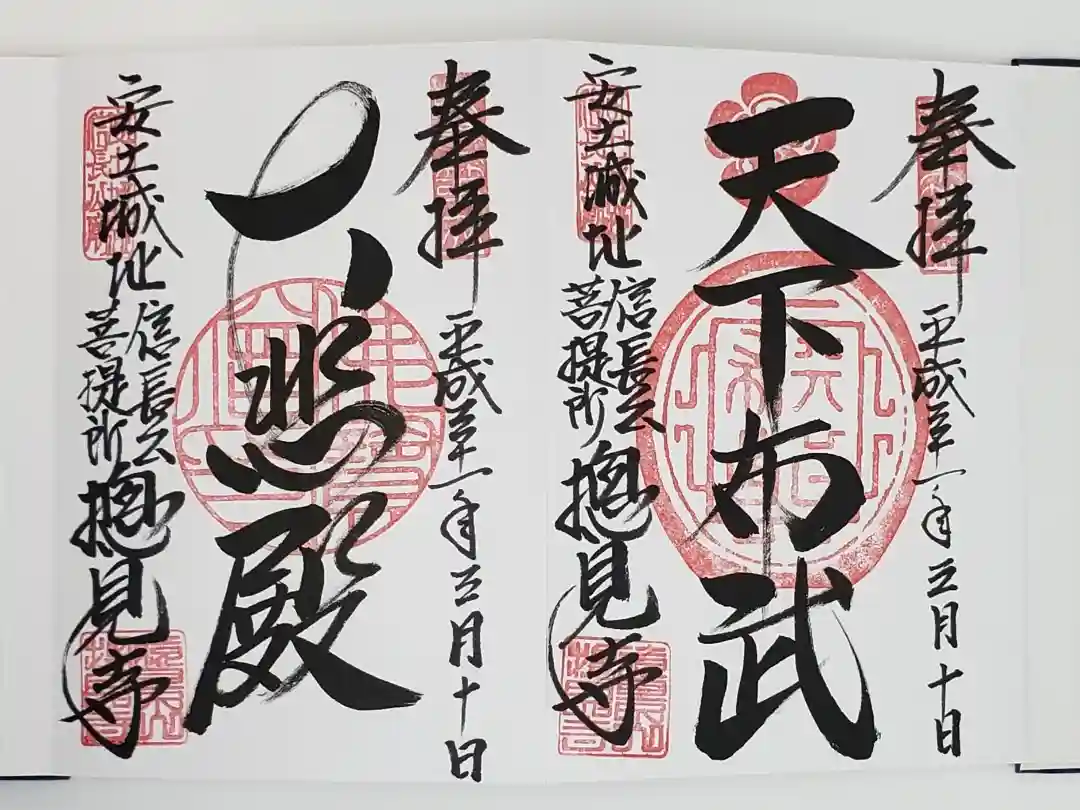 奉拝
平成三十一年三月十日
天下布武
安土城址
信長公
菩提所
摠見寺
奉拝
平成三十一年三月十日
大悲殿
安土城址
信長公
菩提所
摠見寺